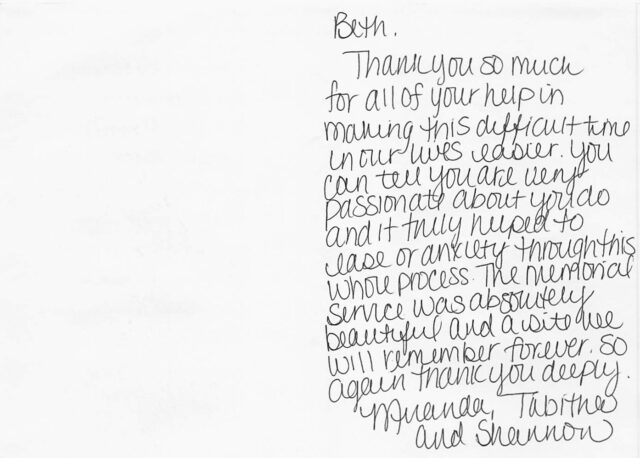 Beth.
Thank you so much
for all of your help in
making this difficult time
in our lives easier. You
can tell you are very
passionate about you do
and it truly helped to
ease or anxiety through this
whole process. The memorial
service was absolutely
beautiful and a site we
will remember forever. So
again thank you deeply.
Miranda, Tabitha
and Shannon